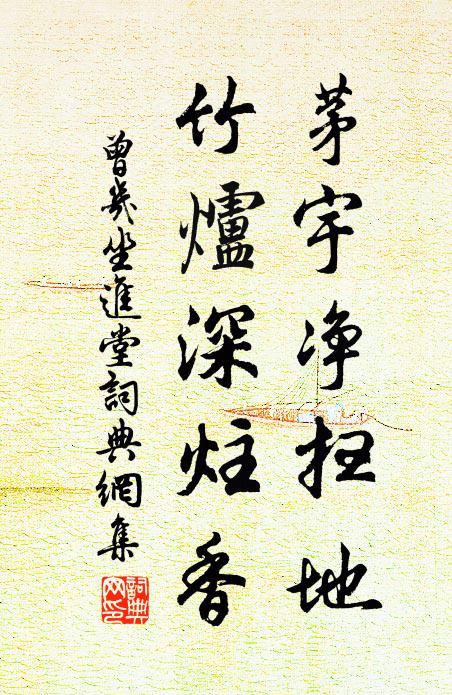 茅宇净扫地
竹爐深炷香
曾幾坐進堂詞典網集
詞典網印